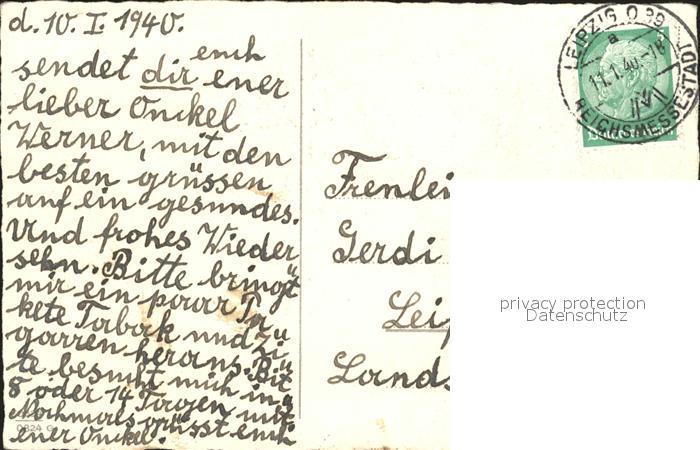 d. 10. I. 1940.
euch
sendet dir euer
lieber Onckel
Werner, mit den
besten grüssen
auf ein gesundes.
Und frohes Wieder
sehn. Bitte bringt
mir ein paar Pa
kete Tabak und Zi
garren heraus. Bit
te besucht mich in
8 oder 14 Tagen mit
Nochmals grüsst euch
euer Onckel.
0824 G
LEIPZIG O 39
a
11.1.40.-18
REICHSMESSESTADT
Frenlei
Gerdi
Leip
Lands
privacy protection
Datenschutz